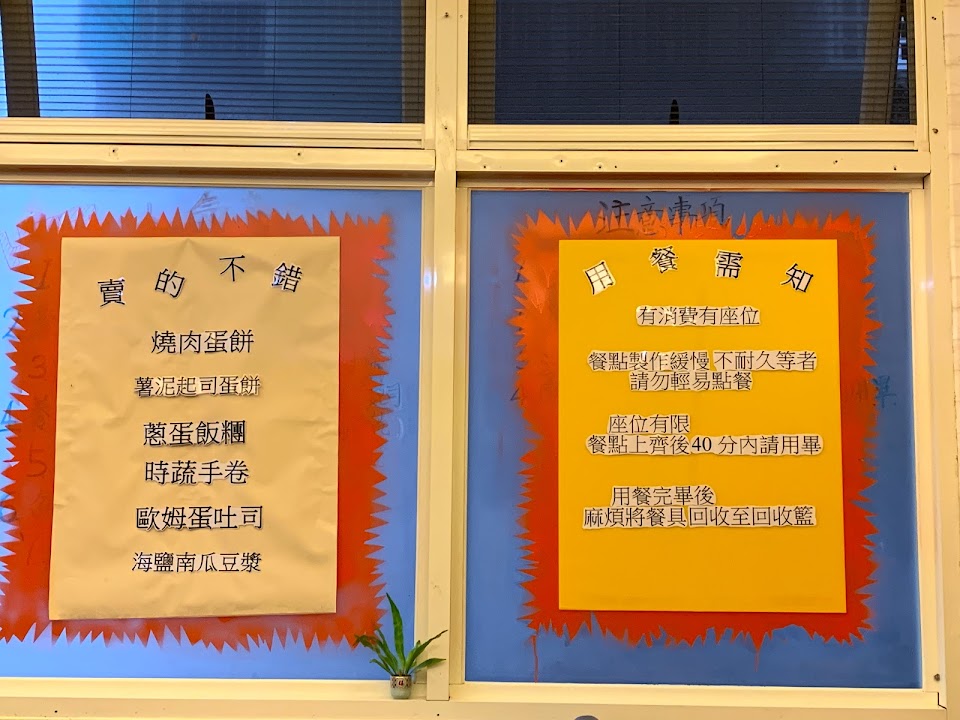 賣的不錯
燒肉蛋餅
薯泥起司蛋餅
蔥蛋飯糰
時蔬手卷
歐姆蛋吐司
海鹽南瓜豆漿
注意事項
用餐需知
有消費有座位
餐點製作緩慢 不耐久等者
請勿輕易點餐
座位有限
餐點上齊後40分內請用畢
用餐完畢後
麻煩將餐具回收至回收籃